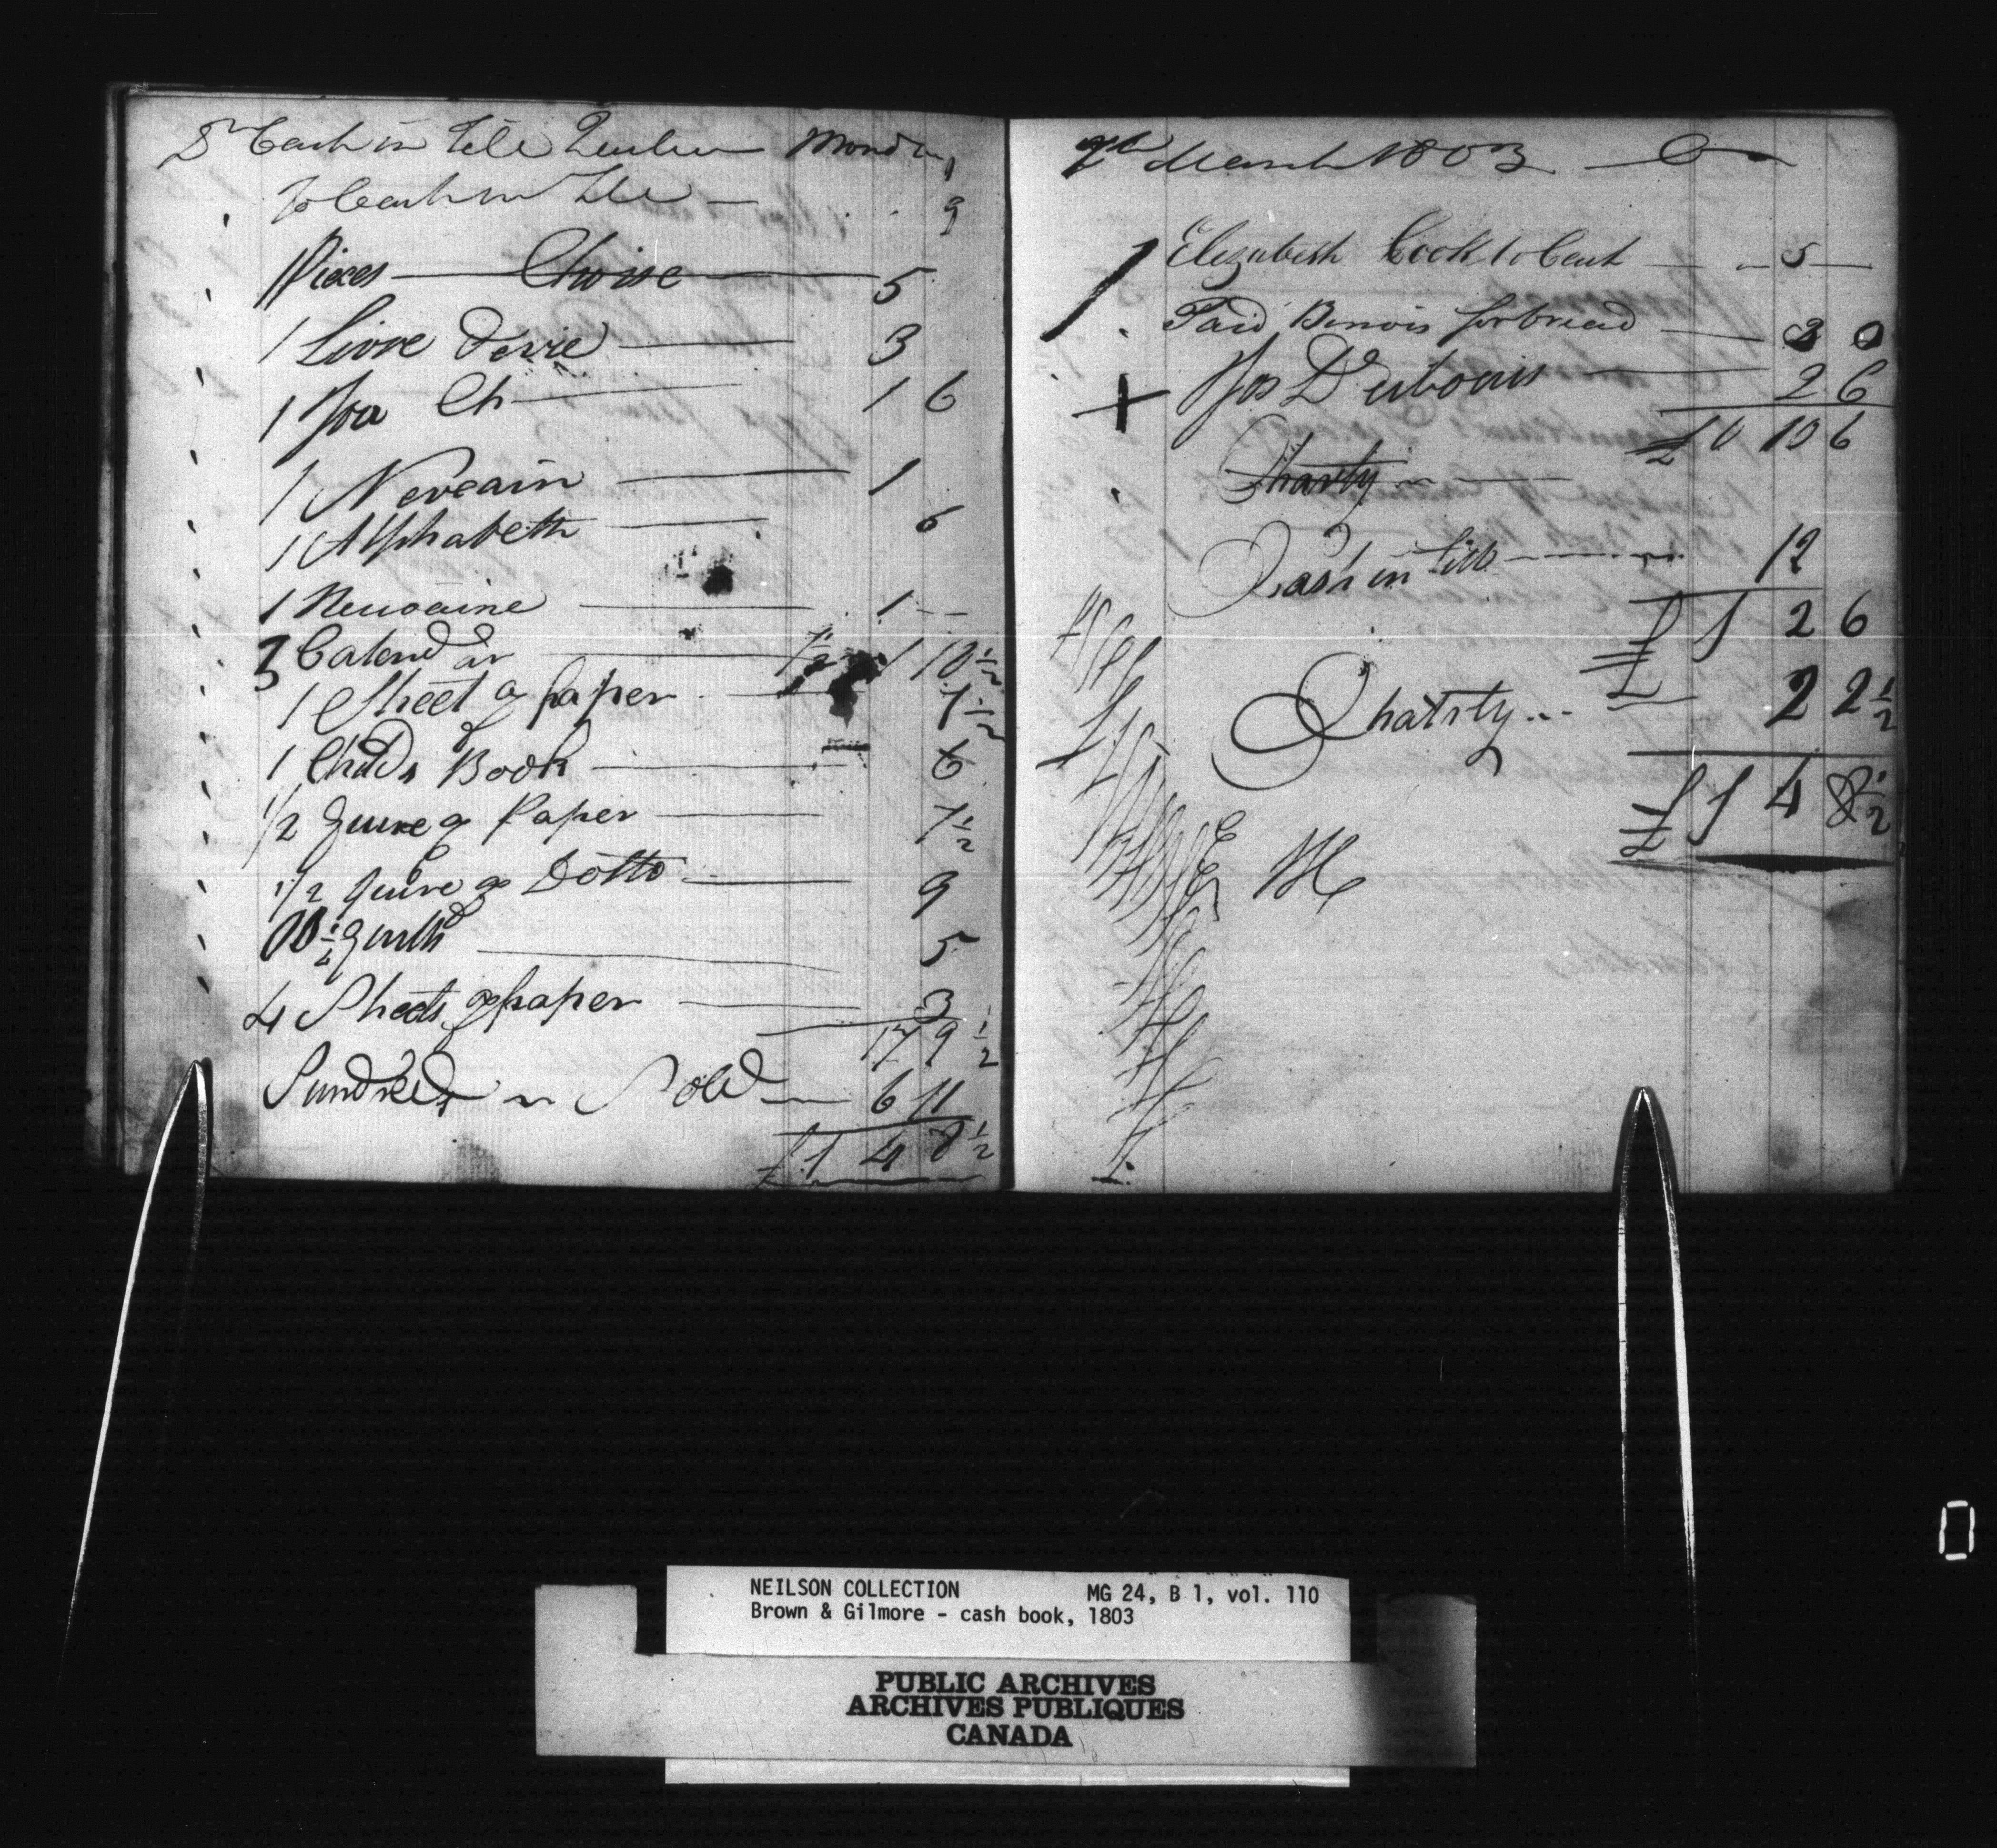 Dr Cash in Till Quebec Monday
To Cash in Till — 9
1 Pieces — Choise — 5
1 Livre Devie — 3
1 Joa Ch — 1 6
1 Neveain — 1
1 Alphabeth — 6
1 Neuvaine — 1 —
3 Calendar — 7½ 1 10½
1 Sheet of paper — 7½
1 Childs Book — 6
1/2 Quire of Paper — 7½
1/2 Quire of Dotto — 9
5
4 Sheets of paper — 3
17 9½
Sundries Sold — 6 11
£ 1 4 8½
March 1803 Cr
Elizabeth Cook to Cash — 5 —
Paid Benois for bread — 3 0
Jos Dubois — 2 6
£ 0 10 6
Charity
Cash in Till — 12
£ 1 2 6
Chatsty... £ 2 2½
£ 1 4 8½
NEILSON COLLECTION MG 24, B 1, vol. 110
Brown & Gilmore - cash book, 1803
PUBLIC ARCHIVES
ARCHIVES PUBLIQUES
CANADA
0